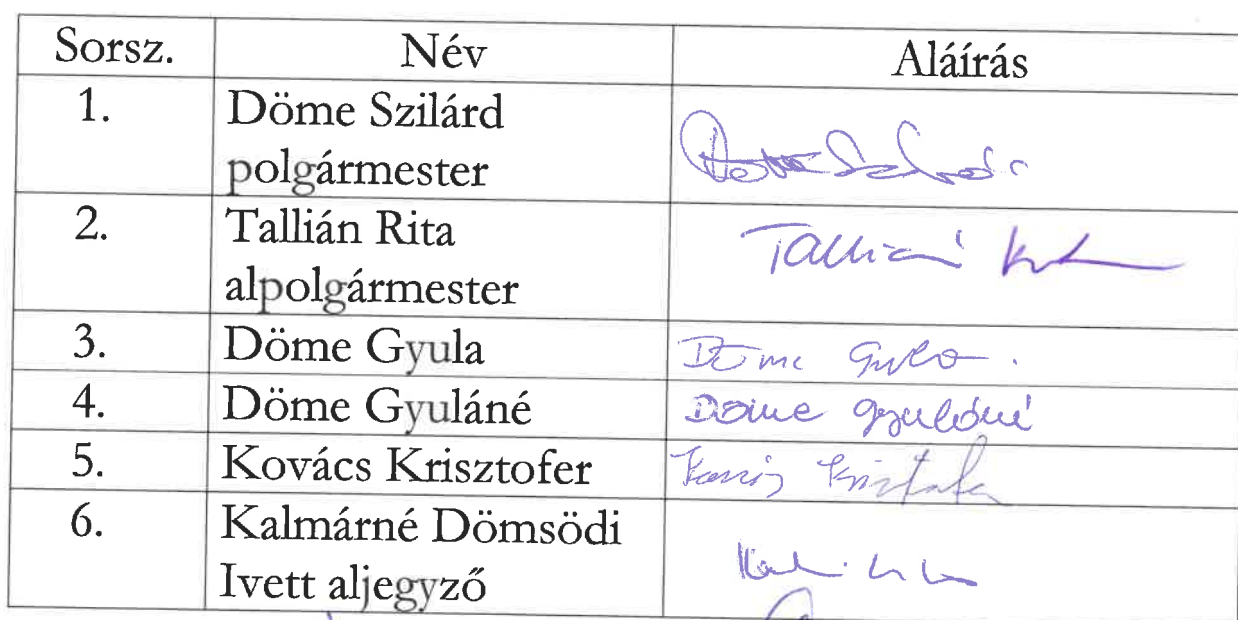 Sorsz. Név Aláírás
1. Döme Szilárd
polgármester
2. Tallián Rita
alpolgármester
Tallián
3. Döme Gyula Döme Gyula.
4. Döme Gyuláné Döme Gyuláné
5. Kovács Krisztofer Kovács Krisztofer
6. Kalmárné Dömsödi
Ivett aljegyző